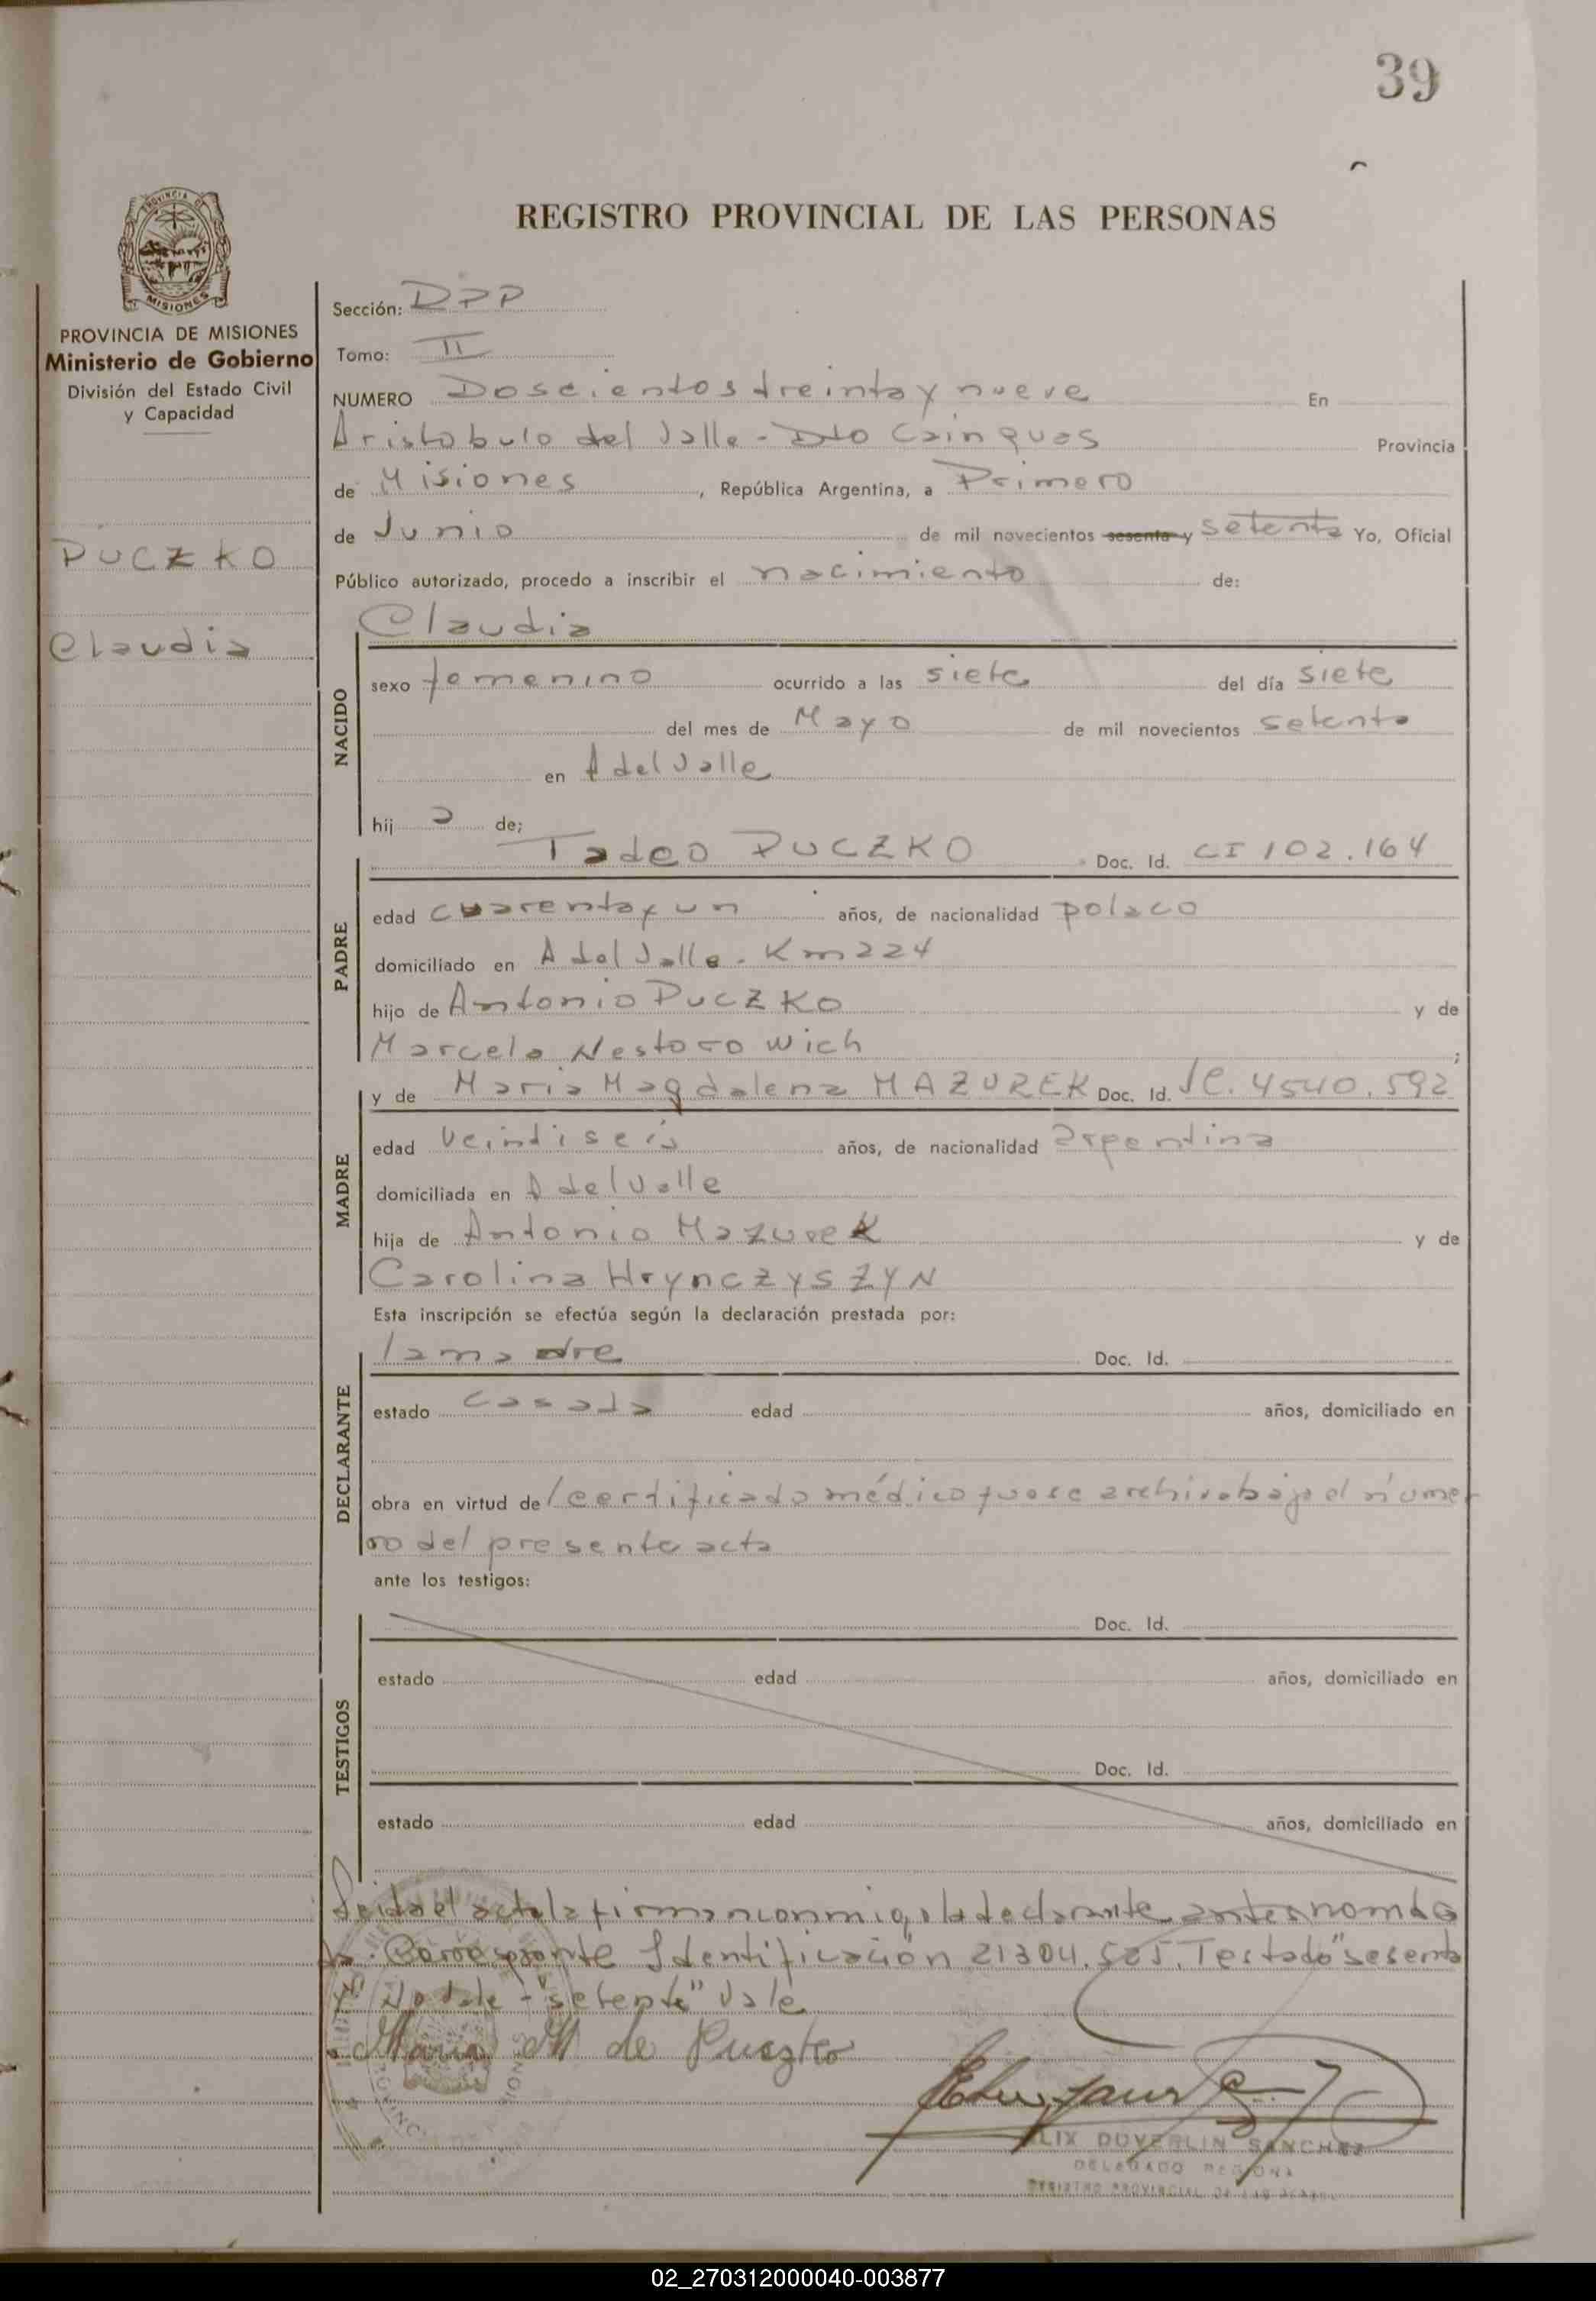 39
REGISTRO PROVINCIAL DE LAS PERSONAS
PROVINCIA DE MISIONES
Ministerio de Gobierno
División del Estado Civil
y Capacidad
PUCZKO
Claudia
Sección: DPP
Tomo: II
NUMERO Doscientos treinta y nueve En
Aristobulo del Valle - Dto Cainguas Provincia
de Misiones, República Argentina, a Primero
de Junio de mil novecientos sesenta y setenta Yo, Oficial
Público autorizado, procedo a inscribir el nacimiento de:
Claudia
NACIDO
sexo femenino ocurrido a las siete del día siete
del mes de Mayo de mil novecientos setenta
en A del Valle
hij a de;
Tadeo PUCZKO Doc. Id. CI 102.164
PADRE
edad cuarenta y un años, de nacionalidad polaco
domiciliado en A del Valle - Km 224
hijo de Antonio PUCZKO y de
Marcela Nestorowich;
y de Maria Magdalena MAZUREK Doc. Id. 4540.592
MADRE
edad veintiseis años, de nacionalidad argentina
domiciliada en A del Valle
hija de Antonio Mazurek y de
Carolina HrynczysZYN
Esta inscripción se efectúa según la declaración prestada por:
la madre Doc. Id.
DECLARANTE
estado casada edad años, domiciliado en
obra en virtud de l certificado médico que se archiva bajo el núme
ro del presente acta
ante los testigos:
Doc. Id.
TESTIGOS
estado edad años, domiciliado en
Doc. Id.
estado edad años, domiciliado en
Leida el acta la firman conmigo la declarante antes nombra
da. Corresponde Identificación 21304.505. Testado "sesenta
y" No vale - "setenta" Vale
Maria M de Puczko
LIX DUVERLIN SANCHEZ
DELEGADO REGIONA
REGISTRO PROVINCIAL DE LAS
02_270312000040-003877